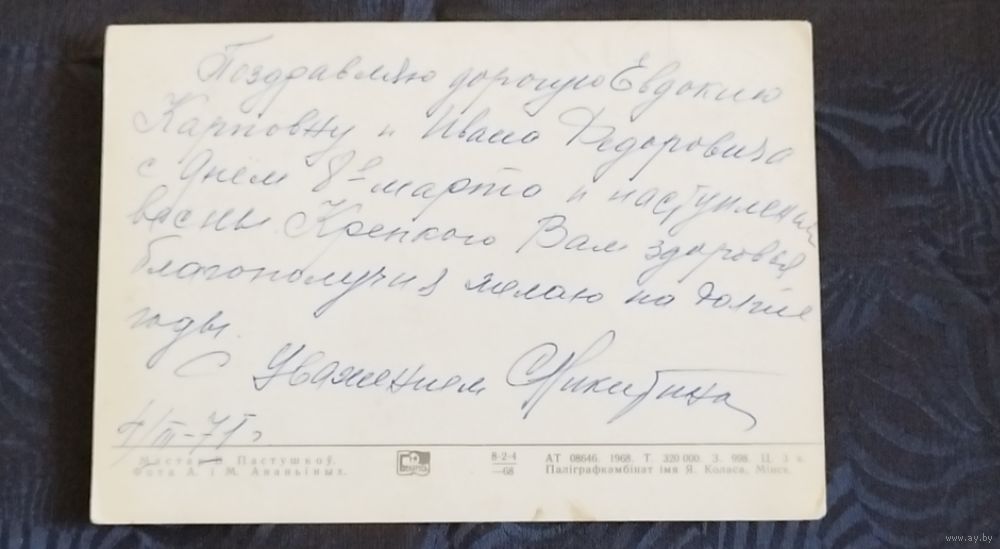 Поздравляю дорогую Евдокию
Карповну и Ивана Федоровича
с днем 8го марта и наступления
весны. Крепкого Вам здоровья
благополучия желаю на долгие
годы.
С Уважением Никитина
4/III-71 г
Мастак В. Пастушкоў.
Фота А. і М. Ананьіных.
8-2-4
—68
АТ 08646. 1968. Т. 320 000. З. 998. Ц. 3 к.
Паліграфкамбінат імя Я. Коласа, Мінск.
www.ay.by